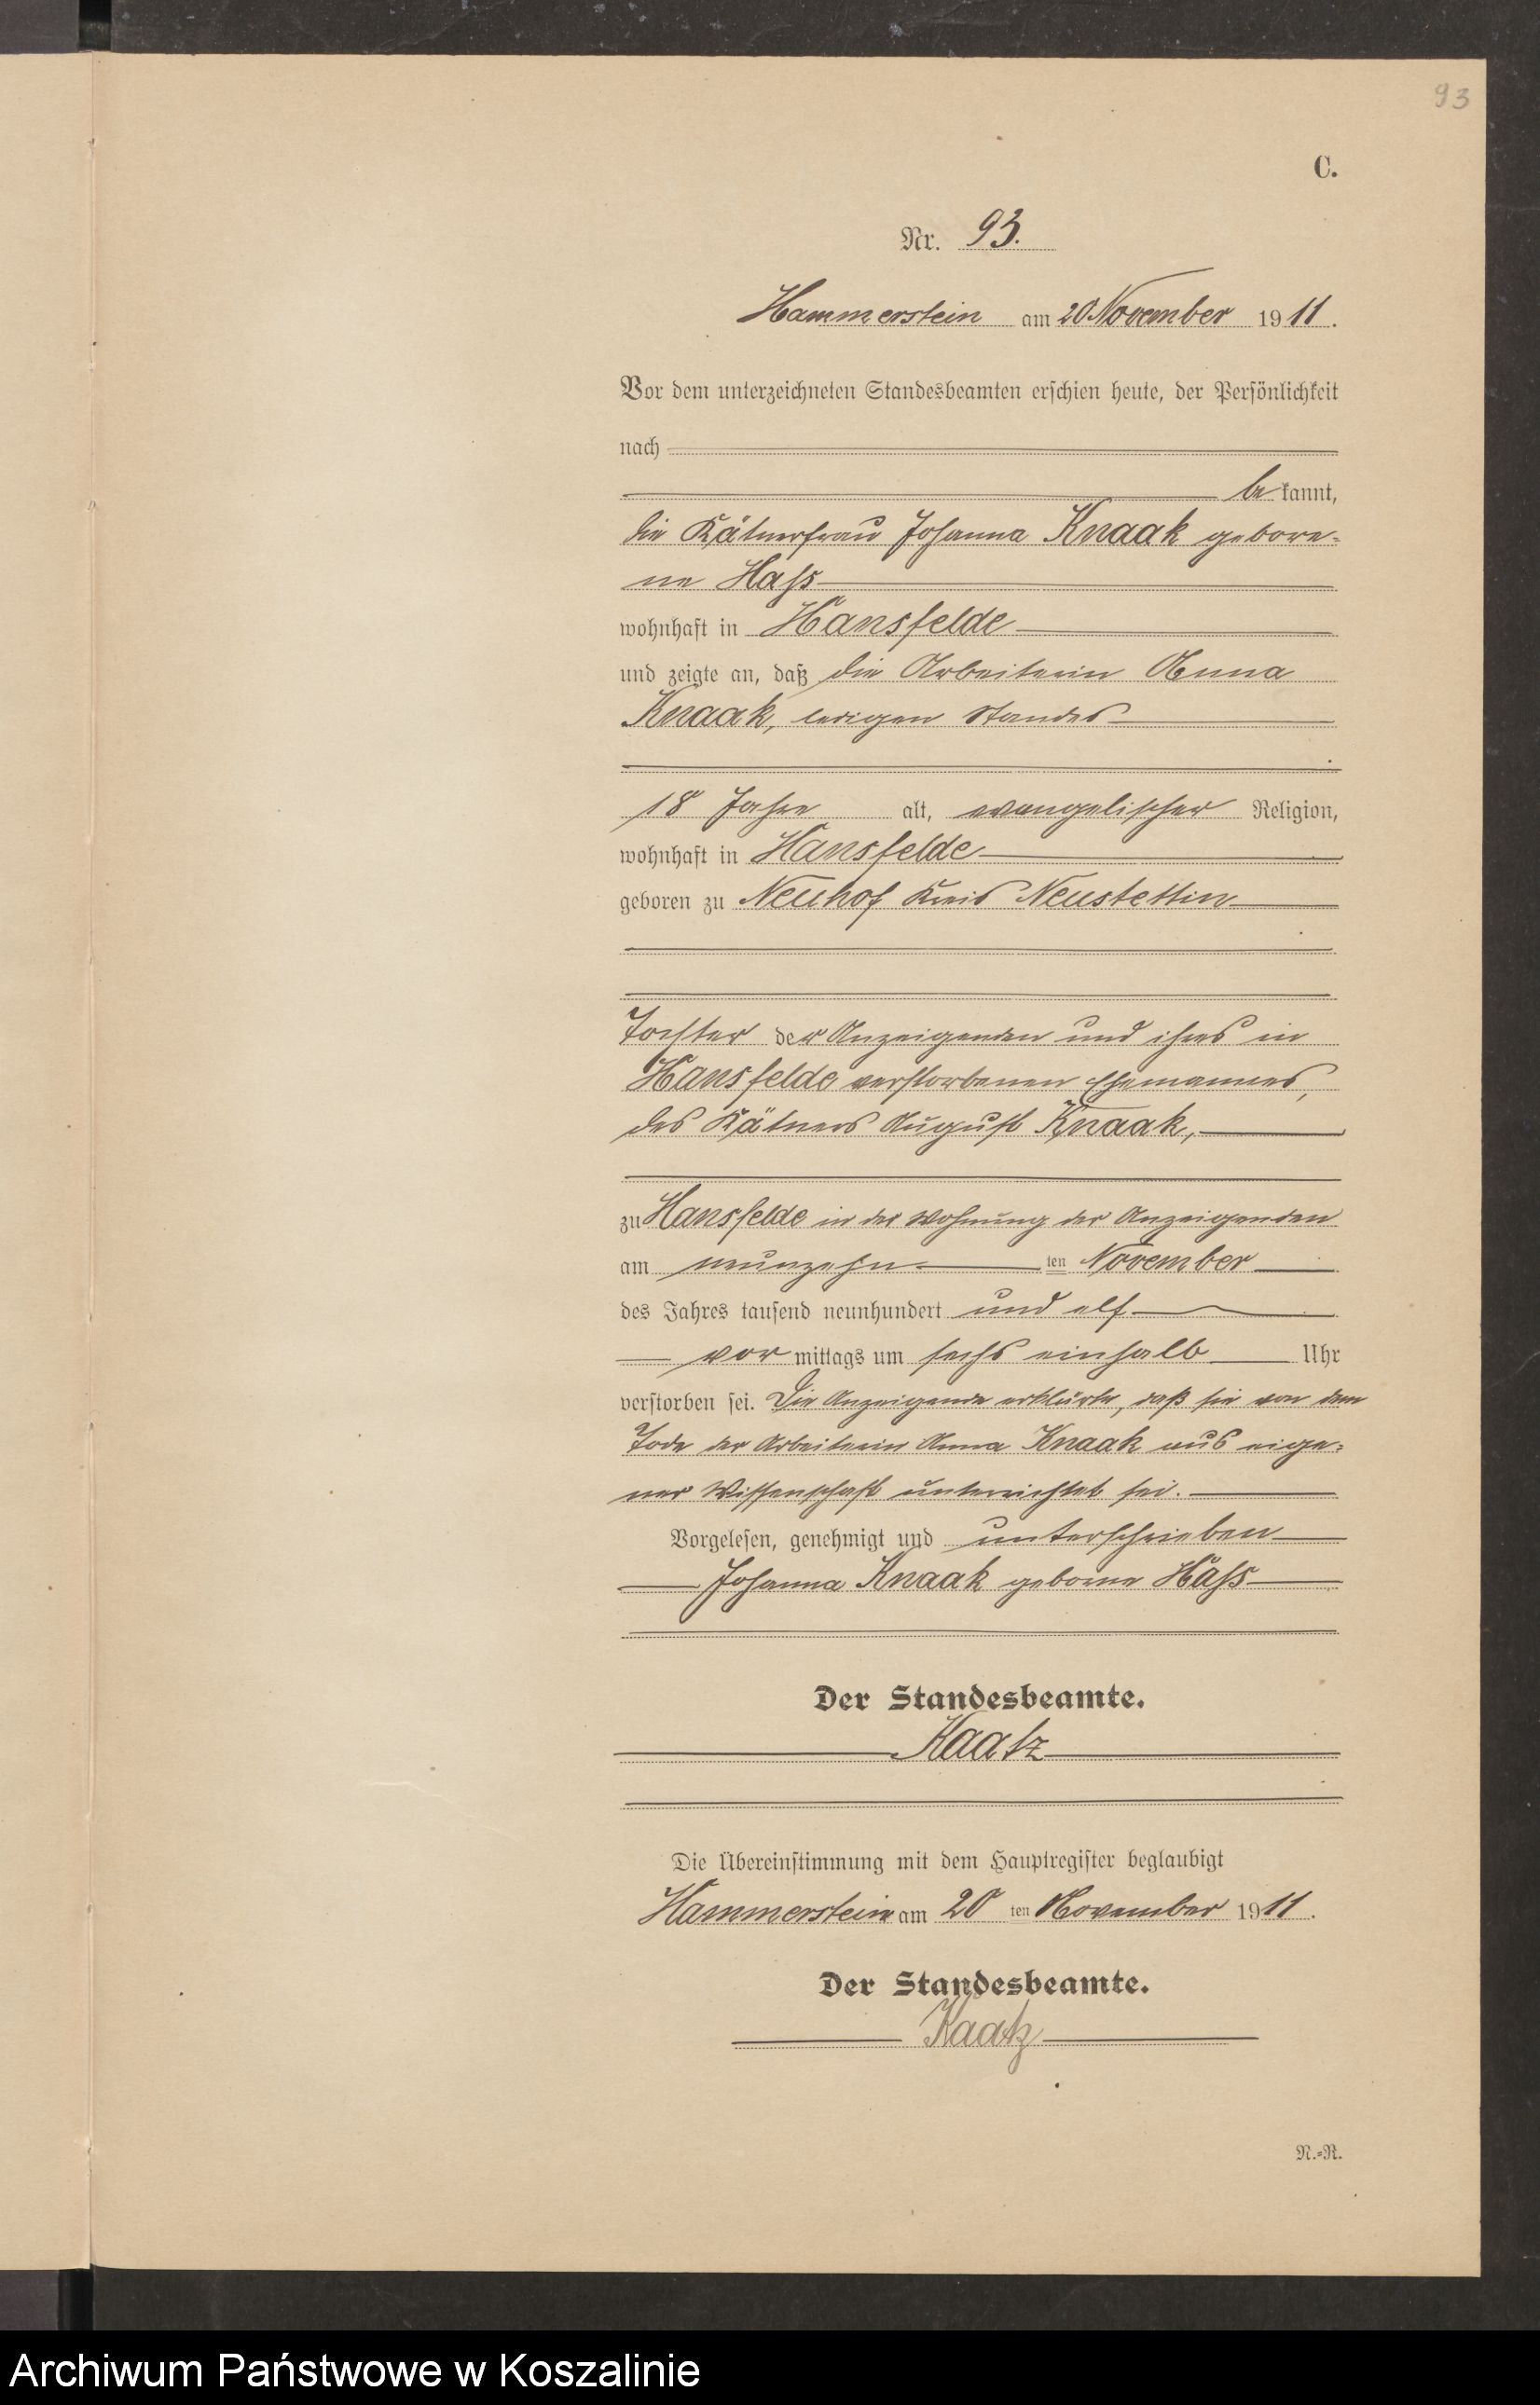 93
C.
Nr. 93.
Hammerstein am 20 November 1911.
Vor dem unterzeichneten Standesbeamten erschien heute, der Persönlichkeit
nach
bekannt,
die Kätnerfrau Johanna Knaak gebore-
ne Hass
wohnhaft in Hansfelde
und zeigte an, daß die Arbeiterin Anna
Knaak, ledigen Standes
18 Jahre alt, evangelischer Religion,
wohnhaft in Hansfelde
geboren zu Neuhof Kreis Neustettin
Tochter der Anzeigenden und ihres in
Hansfelde verstorbenen Ehemannes,
des Kätners August Knaak,
zu Hansfelde in der Wohnung der Anzeigenden
am neunzehn ten November
des Jahres tausend neunhundert und elf
vormittags um sechs einhalb Uhr
verstorben sei. Die Anzeigende erklärte, daß sie von dem
Tode der Arbeiterin Anna Knaak aus eige-
ner Wissenschaft unterrichtet sei.
Vorgelesen, genehmigt und unterschrieben
Johanna Knaak geborne Hass
Der Standesbeamte.
Kaatz
Die Übereinstimmung mit dem Hauptregister beglaubigt
Hammerstein am 20 ten November 1911.
Der Standesbeamte.
Kaatz
N.-R.
Archiwum Państwowe w Koszalinie